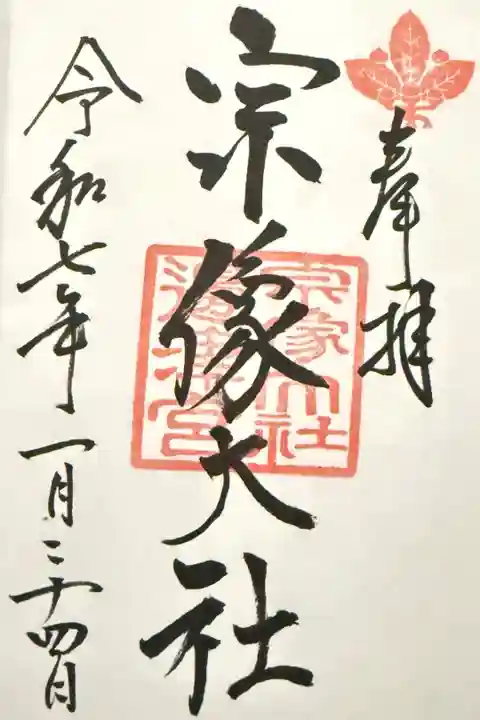 奉拝
宗像大社
宗像大社
邊津宮
令和七年一月二十四日